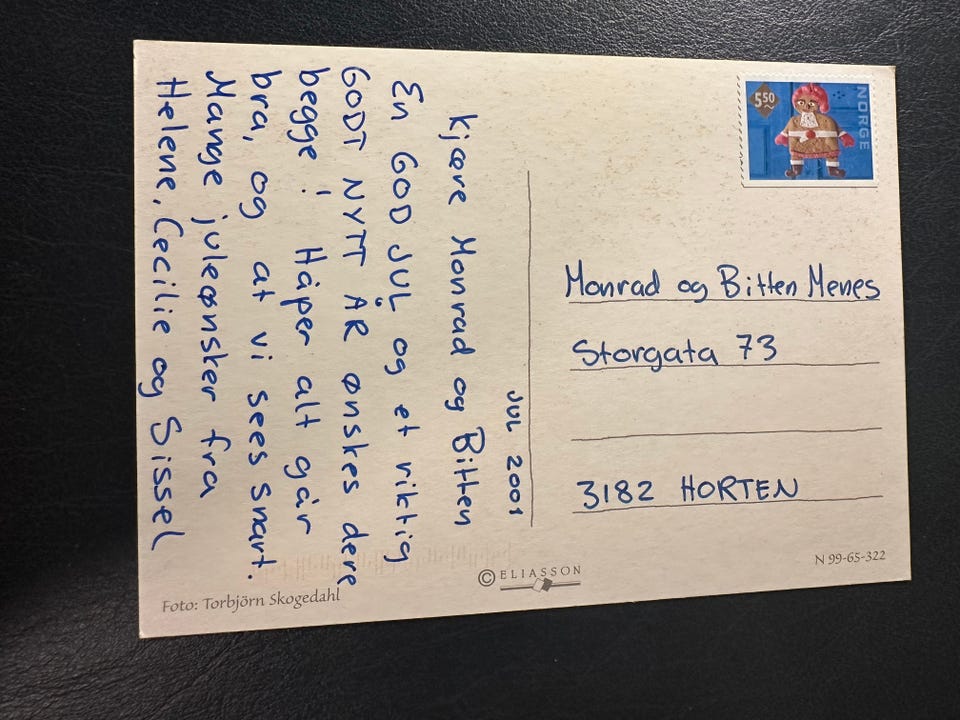 JUL 2001
Kjære Monrad og Bitten
En GOD JUL og et riktig
GODT NYTT ÅR ønskes dere
begge! Håper alt går
bra, og at vi sees snart.
Mange juleønsker fra
Helene, Cecilie og Sissel
550
NORGE
Monrad og Bitten Menes
Storgata 73
3182 HORTEN
Foto: Torbjörn Skogedahl
© ELIASSON
N 99-65-322